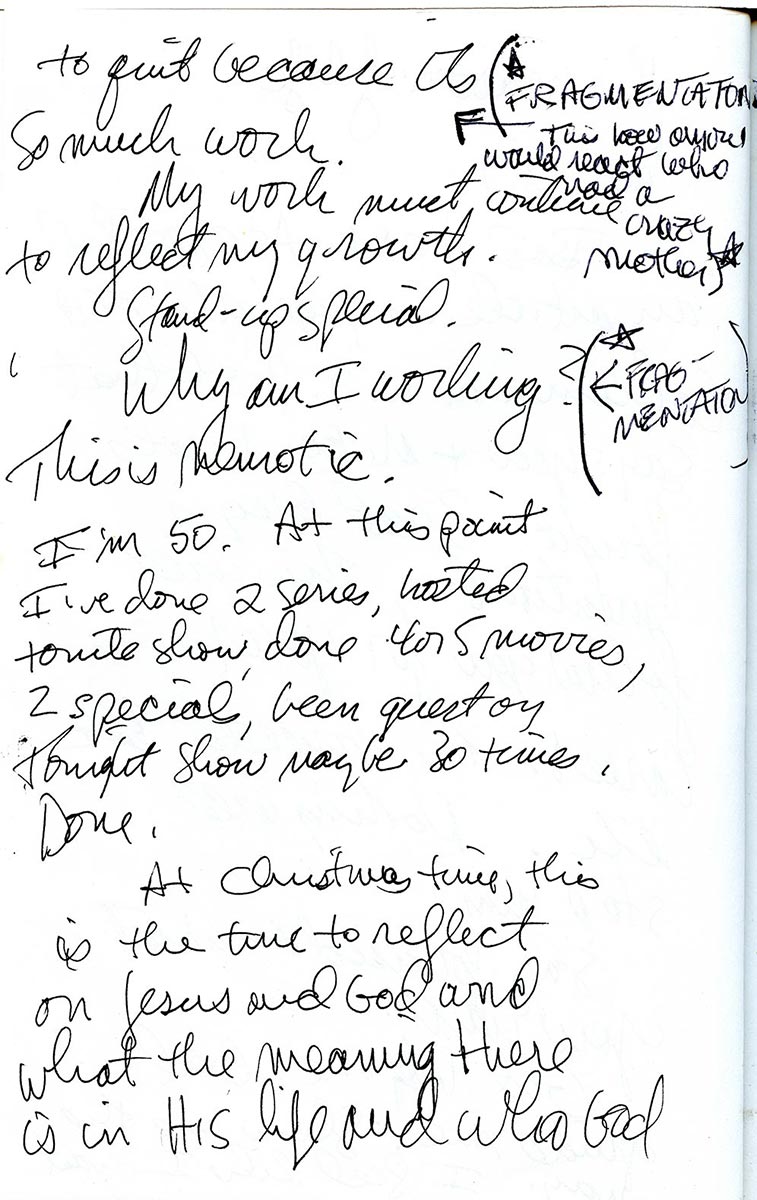 to quit because its
So much work.
My work must continue
to reflect my growth.
Stand-up special.
Why am I working?
This is neurotic.
I'm 50. At this point
I've done 2 series, hosted
tonite show, done 4 or 5 movies,
2 special, been guest on
tonight show maybe 30 times.
Done.
At Christmas time, this
is the time to reflect
on Jesus and God and
what the meaning there
is in His life and who God
FRAGMENTATION
This how anyone
would react who
had a
crazy
mother
FRAG-
MENTATION